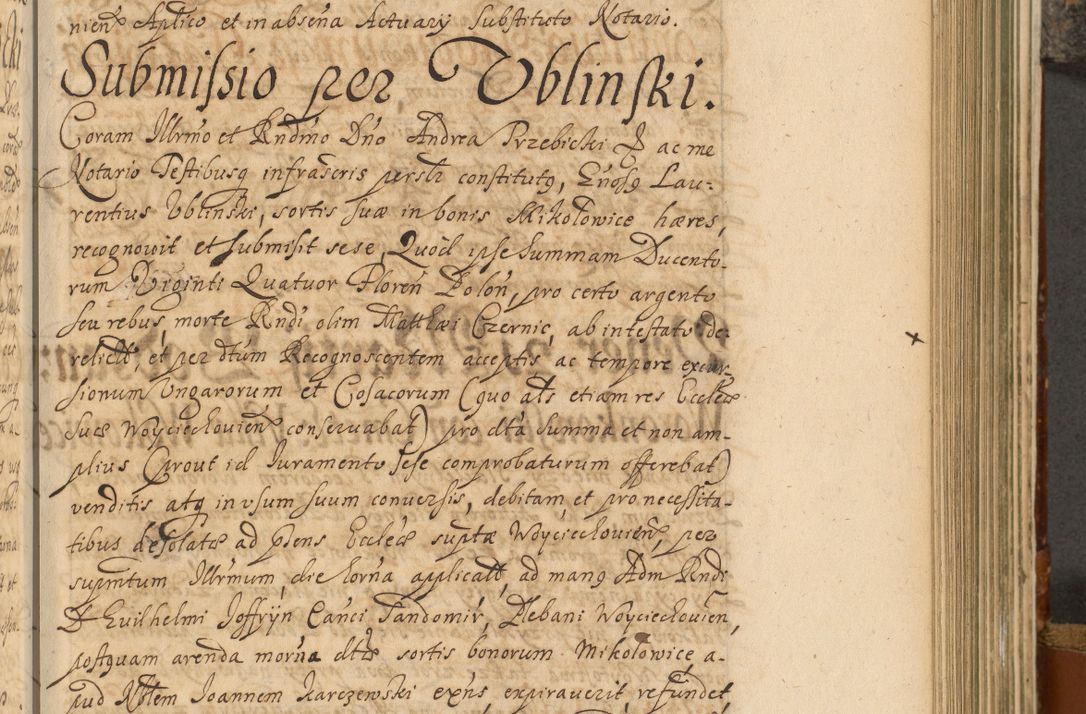 nien Aplico et in absena Actuary Substituto Notario.
Submissio per Ublinski.
Coram Illrmo et Rndmo Dno Andrea Przebicki & ac me
Notario Testibusq infrascris psrslr constitutq, Gnosq Lau-
rentius Ublinski, sortis suæ in bonis Mikołowice hæres,
recognovit et submisit sese, Quod ipse summam Ducento-
rum Viginti Quatuor Floren Polon, pro certo argento
seu rebus, morte Rndi olim Matthæi Czernic, ab intestato de-
relict, et per dtum Recognoscentem acceptis ac tempore excur-
sionum Ungarorum et Cosacorum (quo als etiam res Eccleæ
suæ Woyciechovien conservabat) pro dta summa et non am-
plius (prout id Juramento sese comprobaturum offerebat)
venditis atq in usum suum conversis, debitam et pro necessita-
tibus desolatæ ad pdens Eccleæ suptæ Woyciechovien, per
supmtum Illrmum, die horna applicatt, ad manq Adm Rndi
D Guilhelmi Joffryn Canci Sandomir, Plebani Woyciechovien,
postquam arenda morna dtæ sortis bonorum Mikołowice a-
pud Nblem Joannem Karczewski exns, expiraverit, refundet